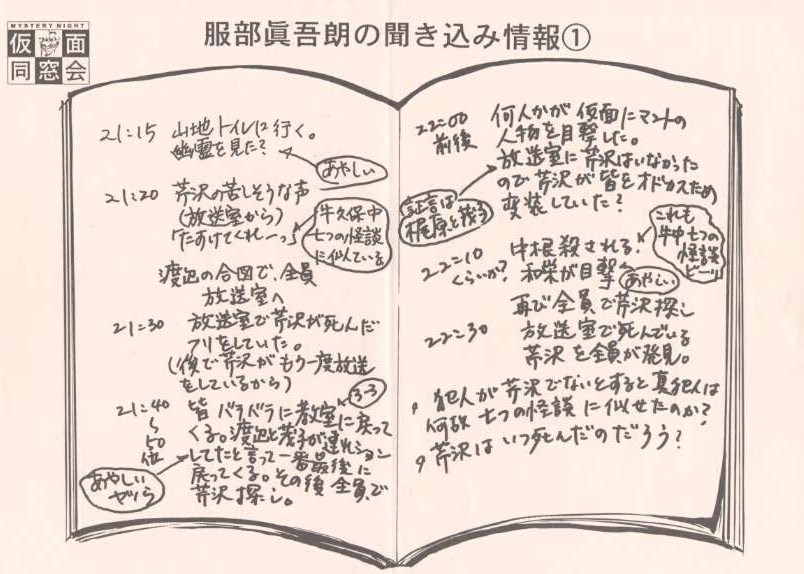 服部眞吾朗の聞き込み情報①
MYSTERY NIGHT
仮面
同窓会
21:15 山地トイレに行く。
幽霊を見た?
あやしい
21:20 芹沢の苦しそうな声
(放送室から)
「たすけてくれー…」
牛久保中
七つの怪談
に似ている
渡辺の合図で、全員
放送室へ
21:30 放送室で芹沢が死んだ
フリをしていた。
(後で芹沢がもう一度放送
をしているから)
3-3
21:40
〜
50
位
皆バラバラに教室に戻って
くる。渡辺と茂子が連れション
してたと言って一番最後に
戻ってくる。その後全員で
芹沢探し。
あやしい
ヤツら
22:00
前後
何人かが仮面にマントの
人物を目撃した。
放送室に芹沢はいなかった
ので芹沢が皆をオドカスため
変装していた?
証言は
梶原と茂子
これも
牛中七つの
怪談
ビーッ
22:10
くらいか?
中根殺される。
和栄が目撃
あやしい
再び全員で芹沢探し
22:30 放送室で死んでいる
芹沢を全員が発見。
犯人が芹沢でないとすると真犯人は
何故七つの怪談に似せたのか?
芹沢はいつ死んだのだろう?